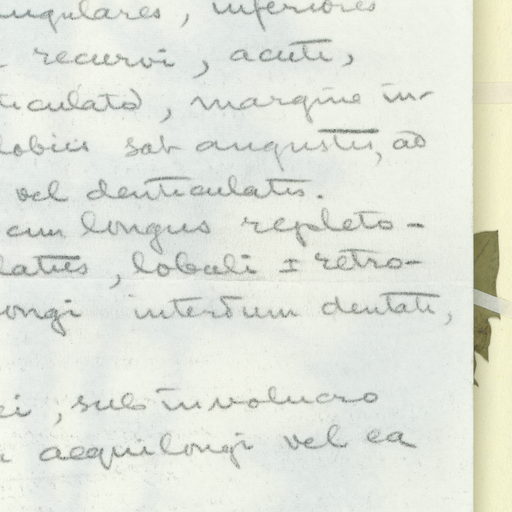 angulares, inferiores
recurvi, acuti,
ticulato, margine in-
lobiis sat angustis, ad
vel denticulatis.
cum longus repleto-
latus, lobuli ± retro-
longi interdum dentati,
ei, sub involucro
aequilongi vel ea